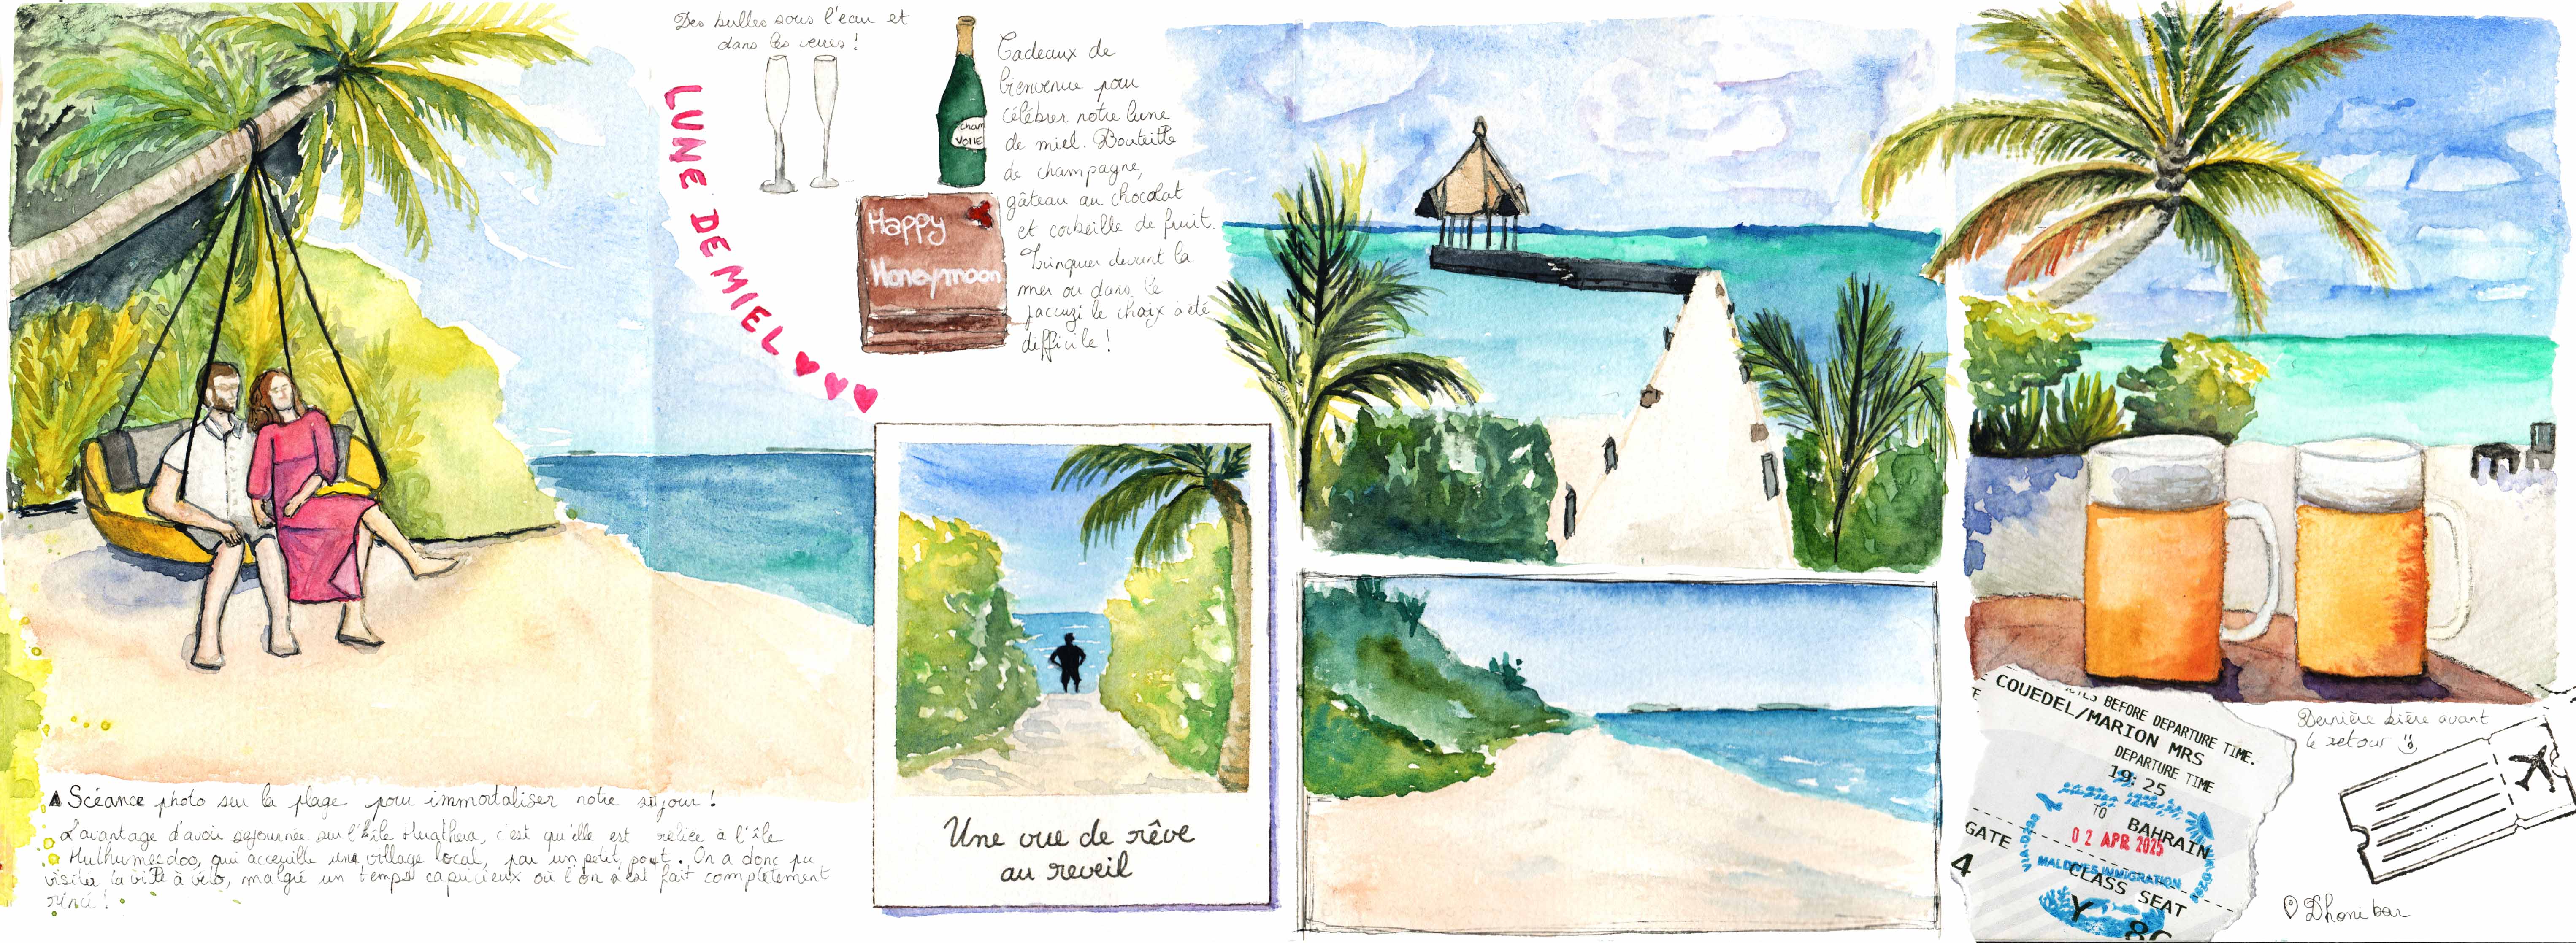 Des bulles sous l'eau et
dans les verres !
LUNE DE MIEL
Cham
VOLLE
Happy
Honeymoon
Cadeaux de
bienvenue pour
célébrer notre lune
de miel. Bouteille
de champagne,
gâteau au chocolat
et corbeille de fruit.
Trinquer devant la
mer ou dans le
jaccuzi le choix a été
difficile !
▲ Scéance photo sur la plage pour immortaliser notre séjour !
L'avantage d'avoir sejournée sur l'île Herathera, c'est qu'elle est reliée à l'île
Hulhumeedoo, qui acceuille une village local, par un petit pont. On a donc pu
visiter la ville à vélo, malgré un temps capricieux où l'on s'est fait complètement
rincé !
Une vue de rêve
au reveil
BEFORE DEPARTURE TIME.
COUEDEL/MARION MRS
DEPARTURE TIME
19:25
TO
BAHRAIN
02 APR 2025
GATE
4
MALDIVES IMMIGRATION
CLASS SEAT
Y
Dernière bière avant
le retour
Dhoni bar